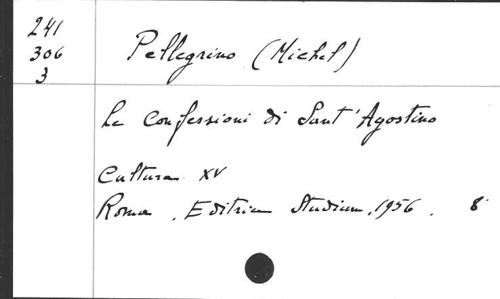 241
306
3
Pellegrino (Michel)
Le Confessioni di Sant'Agostino
Cultura XV
Roma, Editrice Studium, 1956. 8°